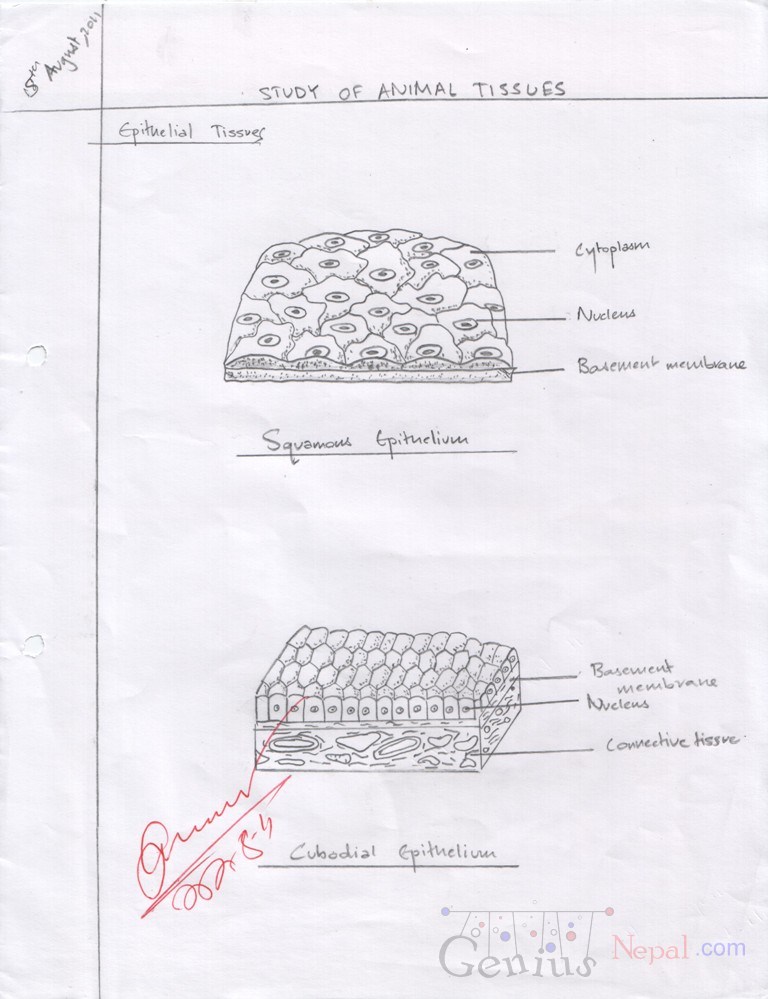 August, 2011
STUDY OF ANIMAL TISSUES
Epithelial Tissues
Cytoplasm
Nucleus
Basement membrane
Squamous Epithelium
Basement
membrane
Nucleus
Connective tissue
Cubodial Epithelium
Genius Nepal.com